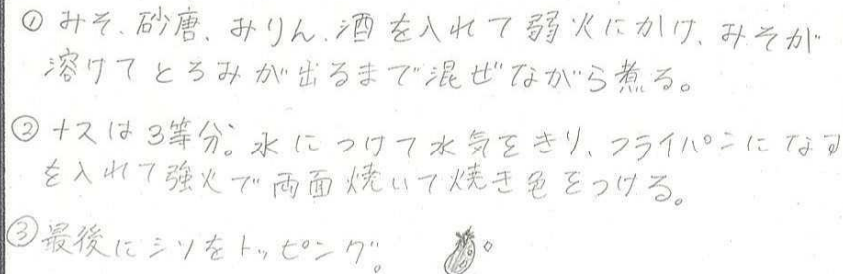 ① みそ、砂唐、みりん、酒を入れて弱火にかけ、みそが
溶けてとろみが出るまで混ぜながら煮る。
② ナスは3等分。水につけて水気をきり、フライパンになす
を入れて強火で両面焼いて焼き色をつける。
③ 最後にシソをトッピング。